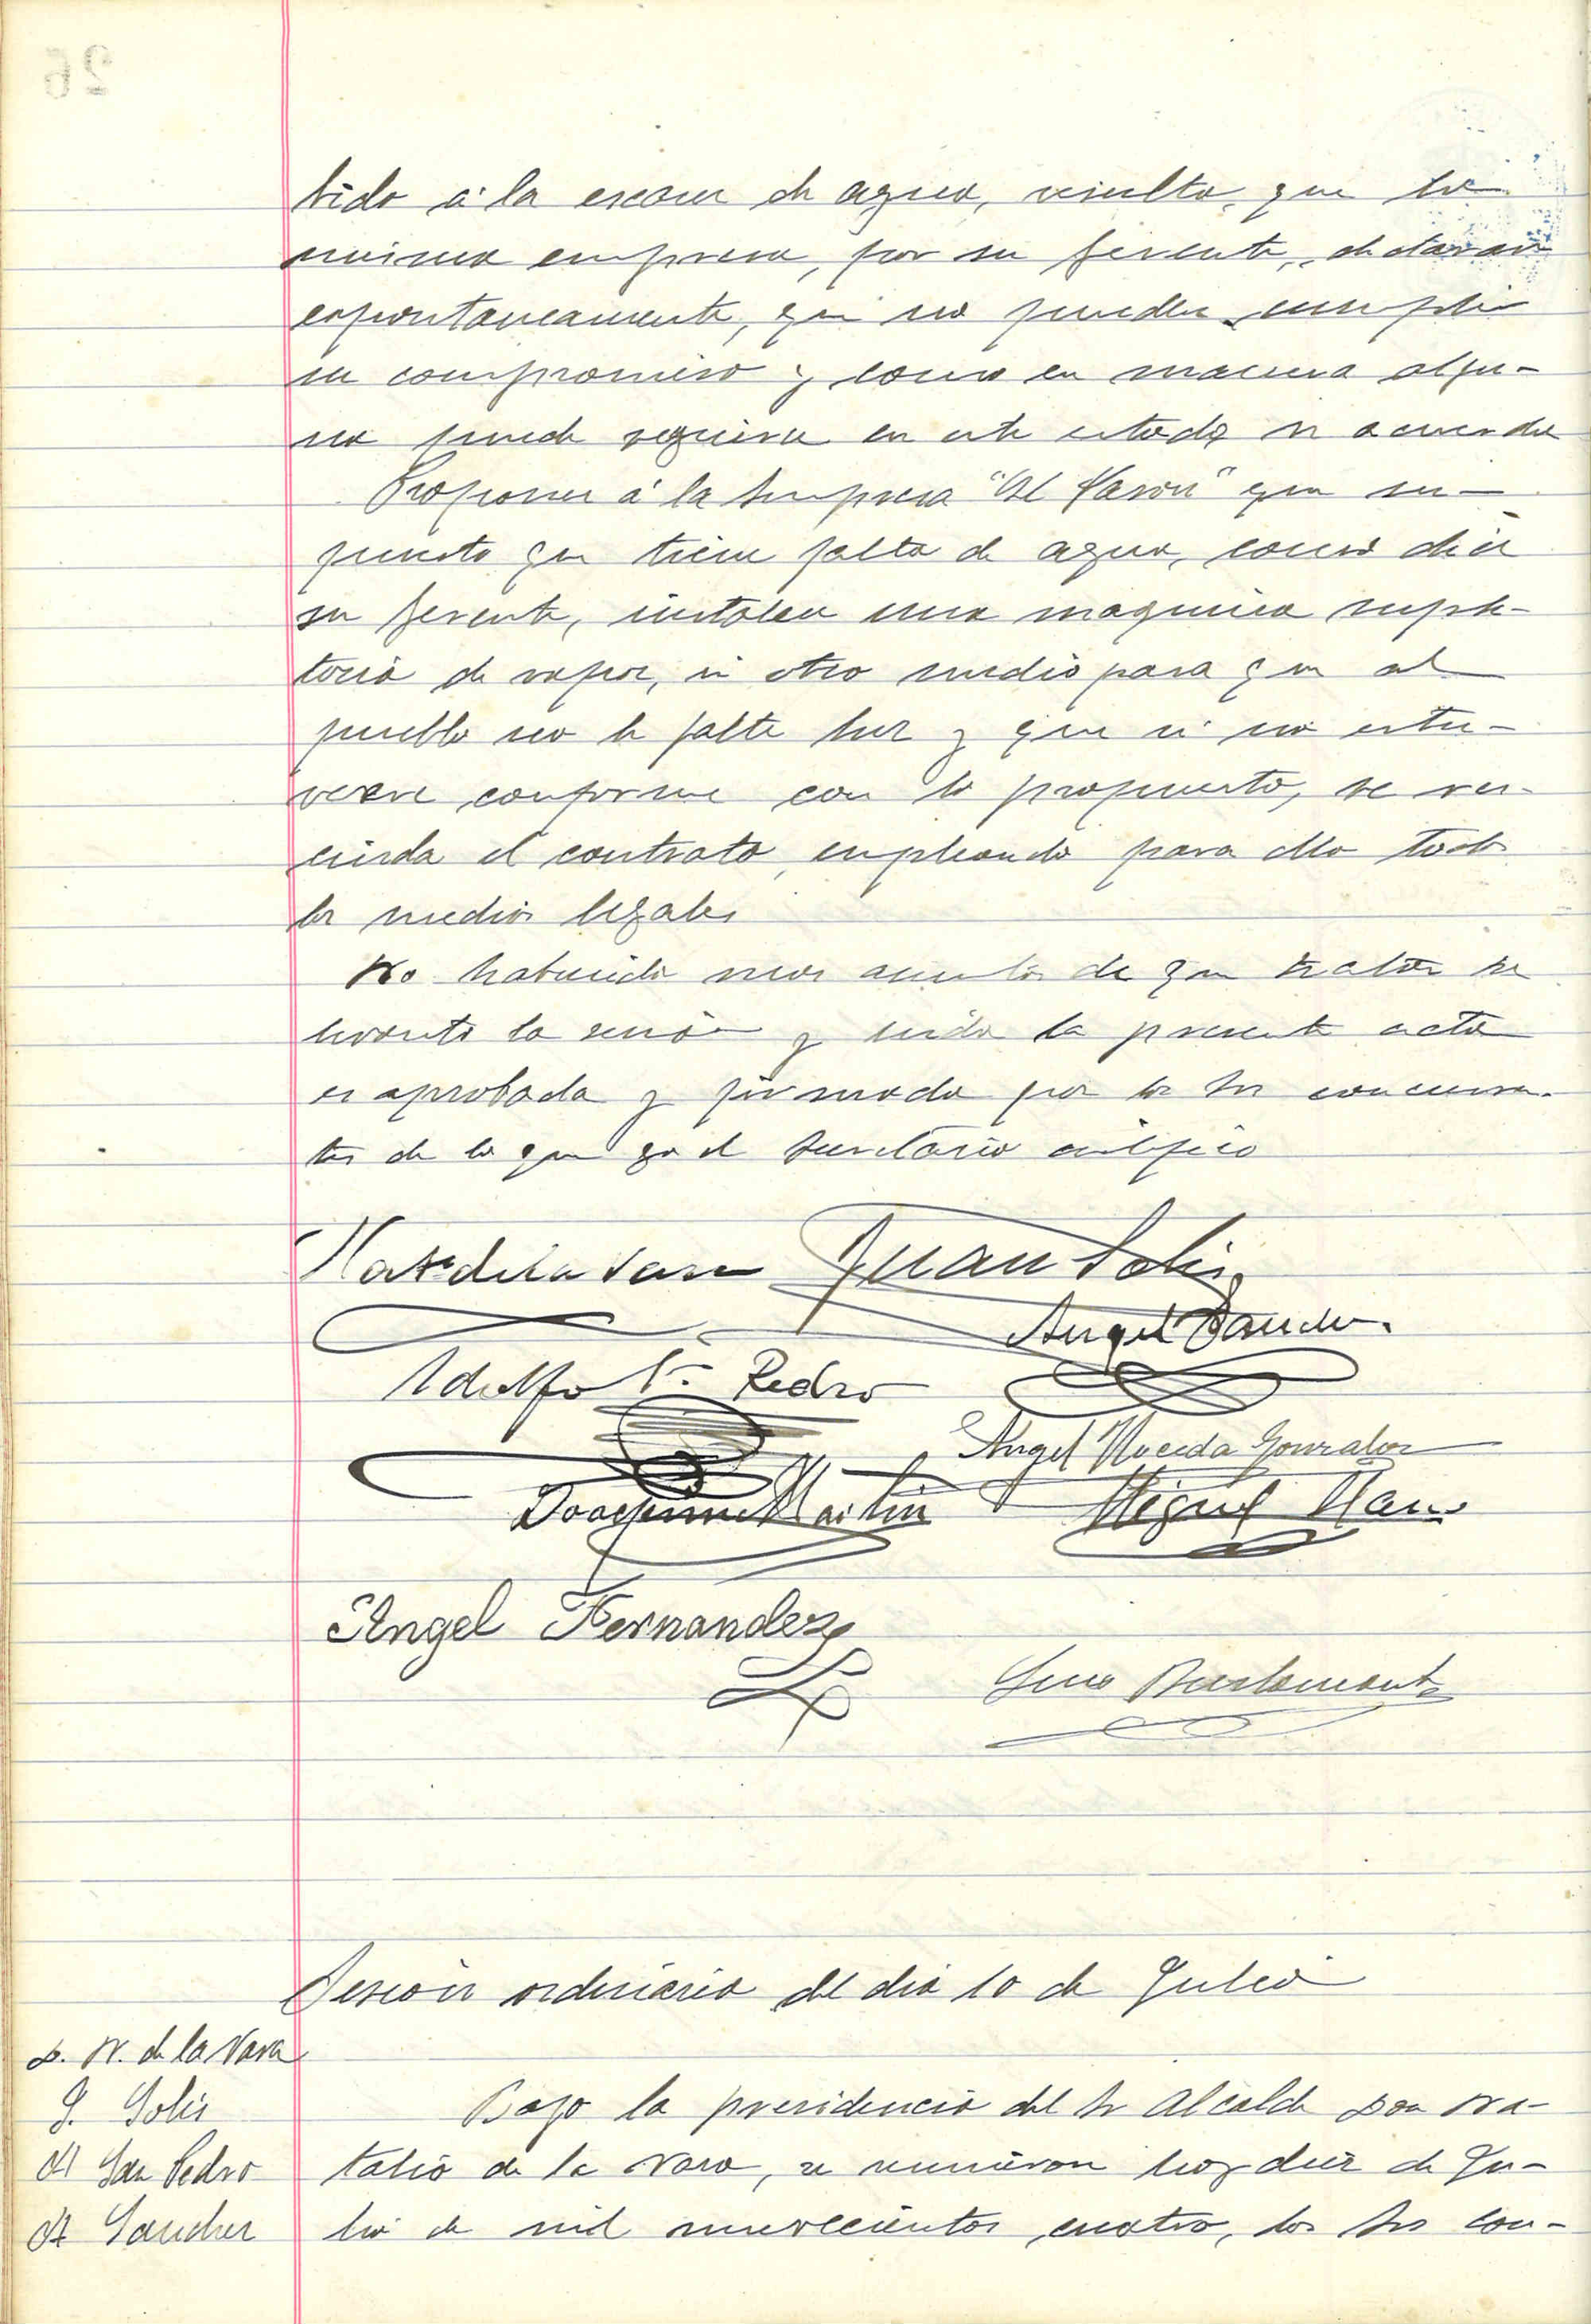 bido á la escasez de agua, resulta que la
misma empresa, por su gerente, declaran
espontaneamente, que no pueden cumplir
su compromiso y como en manera algu-
na puede seguirse en este estado se acuerda
Proponer á la Empresa "El Pavon" que su-
puesto que tiene falta de agua, como dice
su gerente, instalen una maquina suple-
toria de vapor, ú otro medio para que al
pueblo no le falte luz y que si no estu-
viere conforme con lo propuesto, se res-
cinda el contrato, empleando para ello todos
los medios legales
No habiendo mas asuntos de que tratar se
levanto la sesión y leida la presente acta
es aprobada y firmada por los Sres concurren-
tes de lo que yo el Secretario certifico
Nat de la Vara Juan Solis
Angel Sanchez
Adolfo S. Pedro
Angel Noceda Gonzalez
Joaquin Martin Miguel Llano
Angel Fernandez
Bustamante
Sesion ordinaria del dia 10 de Julio
D. N. de la Vara
J. Solis
A San Pedro
A Sanchez
Bajo la presidencia del Sr Alcalde Don Na-
talio de la Vara, se reunieron hoy diez de Ju-
lio de mil novecientos cuatro, los Sres Con-